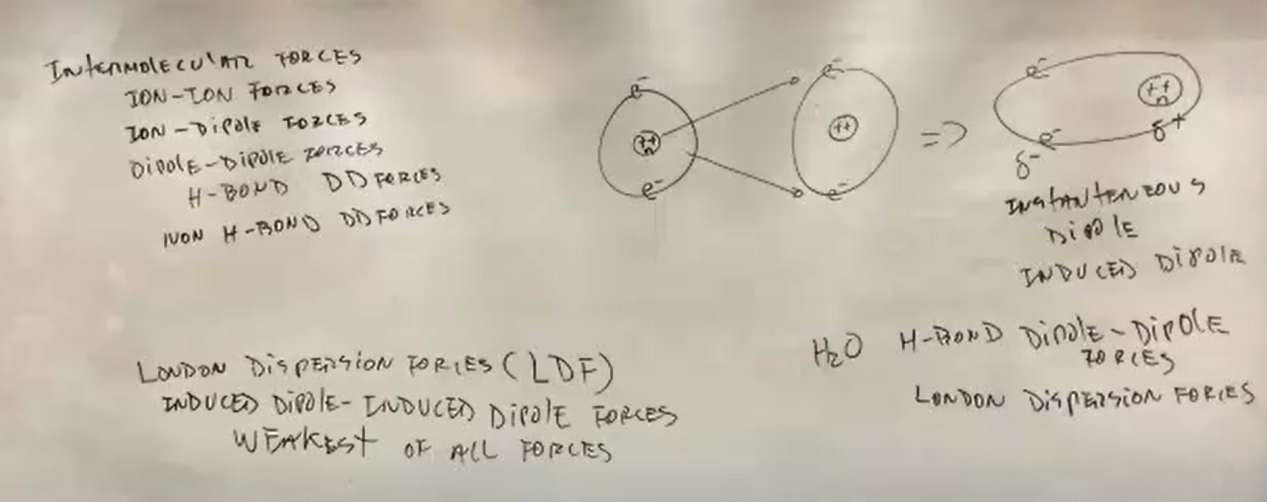 INTERMOLECULAR FORCES
ION-ION FORCES
ION-DIPOLE FORCES
DIPOLE-DIPOLE FORCES
H-BOND DD FORCES
NON H-BOND DD FORCES
e-
++
n
e-
e-
++
e-
=>
e-
++
n
e-
δ-
δ+
INSTANTENEOUS
DIPOLE
INDUCED DIPOLE
LONDON DISPERSION FORCES (LDF)
INDUCED DIPOLE-INDUCED DIPOLE FORCES
WEAKEST OF ALL FORCES
H2O H-BOND DIPOLE-DIPOLE
FORCES
LONDON DISPERSION FORCES